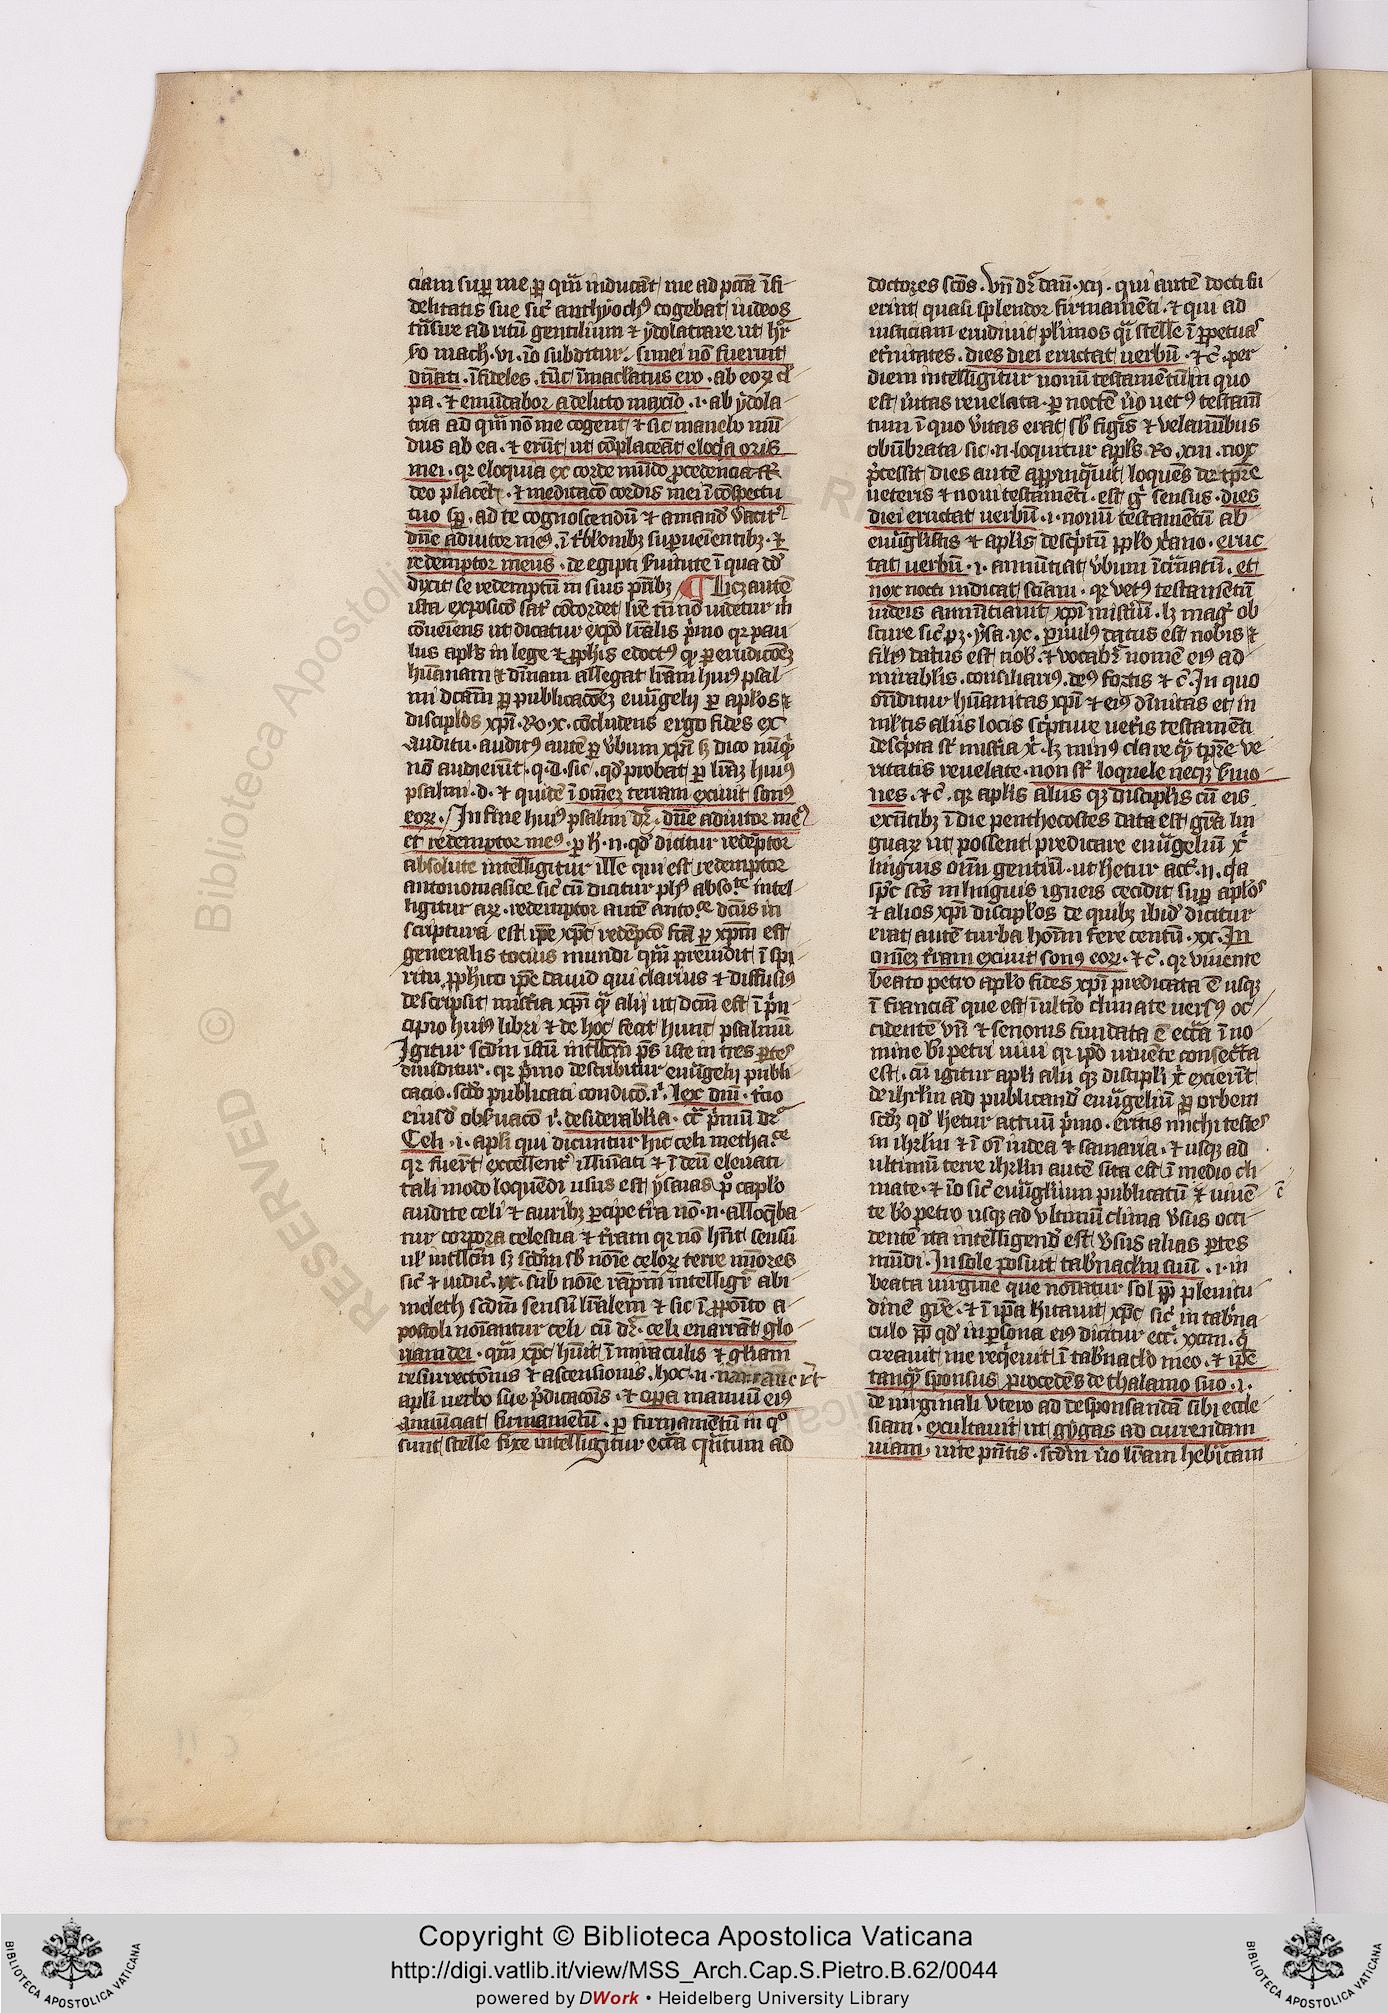 ciam sup me p quā inducāt me ad pctā īfi
delitatis sue sic anthyochꝰ cogebat iudeos
trāsire ad ritū gentilium ⁊ ydolatrare ut hr̄
so mach. vi. iō subditur. si mei nō fuerint
dn̄ati. īfideles. tūc īmaclatus ero. ab eoꝝ cl
pa. ⁊ emūdabor a delicto maxīo .i. ab ydola
tria ad quā nō me cogent ⁊ sic manebo mū
dus ab ea. ⁊ erūt ut cōplaceāt eloq̄a oris
mei. qr eloquia ex corde mūdo procedencia
deo placēt. ⁊ meditacō cordis mei ī cōspectu
tuo sp̄. ad te cognoscendū ⁊ amand
dn̄e adiutor meꝰ. ī tribłonibꝫ superueīentibꝫ. ⁊
redemptor meus. de egipti fuitute ī qua dō
dixit se redemptū in suis p̄ribꝫ ¶ Licꝫ autē
ista exposicō satꝭ cōcordet lr̄e tn̄ nō uidetur m̄
cōueīens ut dicatur expō lr̄alis p̄mo qr pau
lus apl̄s in lege ⁊ prophīs edoctꝰ
hūanam ⁊ diuīnam allegat lr̄am huiꝰ psal
mi dictam per publicacōeꝫ euāgelij per apl̄os ⁊
discipl̄os xp̄i. Ro. x. cōcludens ergo fides ex
auditu. auditꝰ autē per ūbum xp̄i sꝫ dico nūq̄
nō audierūt. q. d. sic. qd̄ probat per lr̄aꝫ huiꝰ
psalmi. d. ⁊ quidē ī omēꝫ terram exiuit sonꝰ
eoꝝ. In fine huiꝰ psalmi dr̄. dn̄e adiutor meꝰ
et redemptor meꝰ. p h. n. qd̄ dicitur redēptor
absolute intelligitur ille qui est redemptor
antonomasice sic cū dicitur phꝰ absoᵗᵉ intel
ligitur ar. redemptor autē antoᶜᵉ dictus in
scriptura est ipse xp̄c redēpcō fctā p xp̄m est
generalis tocius mundi quā preuidit ī spi
ritu prophīco ipse dauid qui clarius ⁊ diffusiꝰ
descripsit misteria xp̄i q̄ alij ut dcm̄ est ī prin
cipio huiꝰ libri ⁊ de hoc fecit hunc psalmū
Igitur scdm̄ istū intlcm̄ ps iste in tres ptes
diuiditur. qr p̄mo describitur euāgelij publi
cacio. scdo publicati condicō. ī. lex dn̄i. tcio
eiusd̄ obfuacō ī. desiderabīlia. ctꝭ p̄mū dr̄
Celi. i. apl̄i qui dicuntur hic celi methaᶜᵉ
qr fuerūt excellentꝰ illiīnati ⁊ ī deū eleuati
tali modo loquendi usus est ysaias pᵒ capl̄o
audite celi ⁊ auribꝫ percipe terra nō. n. alloq̄ba
tur corpora celestia ⁊ terram qr nō hn̄t sensū
ul̄ intlcm̄ sꝫ scdm̄ sb̄ noīe celoꝝ terre mīores
sic ⁊ iudic. ix. sub noīe rapnī intelligit abi
meleth scdm̄ sensū lr̄alem ⁊ sic ī proposīto a
postoli noīantur celi cū dr̄. celi enarrāt glo
riam dei. quā xp̄c hūit ī miraculis ⁊ gl̄iam
resurrectonis ⁊ ascensionis. hoc. n. narrauerūt
apl̄i uerbo siue p̄dicacōis. ⁊ opa manuū eiꝰ
annūciat firmamētū. p firmamētū in qᵒ
sunt stelle fixe intelligitur ecctā quātum ad
doctores scōs. vn̄ dr̄ dan̄. xij. qui autē docti fu
erint quasi splendor firmamēti. ⁊ qui ad
iusticiam erudiunt plimos q̄i stelle ī perpetuas
et̄nitates. dies diei eructat uerbū. ⁊c̄. per
diem intelligitur nouū testamētū in quo
est ūitas reuelata. p noctē ūo uetꝰ testamē
tum ī quo ūitas erat sb̄ figīs ⁊ velaminibus
obūbrata sic. n. loquitur apl̄s. Ro. xiii. nox
p̄cessit dies autē appropinq̄uit loquēs de tp̄re
ueteris ⁊ noui testamēti. est gͦ sensus. dies
diei eructat uerbū. i. nouū testamētū ab
euāglīstis ⁊ apl̄is descptū ppl̄o xp̄iano. eruc
tat uerbū. i. annūtiat ūbum īcarnatū. et
nox nocti indicat sciam. qr vetꝰ testamētū
iudeis annūtiauit xp̄i misteriū. lꝫ magꝭ ob
scure sic pꝫ. ysa. ix. paruulꝰ datus est nobis ⁊
filiꝰ datus est nob. ⁊ vocabr̄ nomē eiꝰ ad
mirabilis. consiliariꝰ. deꝰ fortis ⁊c̄. In quo
ondīditur hūanitas xp̄i ⁊ eiꝰ diuīnitas et in
mltis aliis locis scpture uetīs testamēti
descpta st mistīa xp̄i. lꝫ minꝰ clare q̄ tp̄re ve
ritatis reuelate. non st loquele neqꝫ ūmo
nes. ⁊c̄. qr apl̄is aliis qꝫ discipl̄is cū eis
exn̄tibꝫ ī die penthecostes data est gr̄a lin
guaꝝ ut possent predicare euāgeliū xp̄i
linguis oīm gentiū. ut hetur act. ij. qa
sp̄c scs in linguis igneis cecidit sup apl̄os
⁊ alios xp̄i discipl̄os de quibꝫ ibid̄ dicitur
erat autē turba hoīm fere centū. xx. In
omēꝫ terram exiuit sonꝰ eoꝝ. ⁊c̄. qr viuente
beato petro apl̄o fides xp̄i predicata ē usqꝫ
ī franciam que est ī ultīo climate uersꝰ oc
cidentē vn̄ ⁊ senonis fundata ē ecctā ī no
mine bi petri uiui qr ipo viuēte consecrata
est. cū igitur apl̄i alij qꝫ discipl̄i xp̄i exierīt
de ihrl̄m ad publicand̄ euāgeliū p orbem
scdꝫ qd̄ hetur actuū p̄mo. eritis michi testes
in ihrl̄m ⁊ ī oī iudea ⁊ samaria. ⁊ usqꝫ ad
ultimū terre ihrl̄m autē sita est ī medio cli
mate. ⁊ iō sic euāgliūm publicatū ē viuē
te bo petro usqꝫ ad vltimū clima ūsus occi
dentē ita intelligend̄ est ūsus alias ptes
mūdi. In sole posuit tabnaclm̄ suū. i. in
beata uirgine que noīatur sol pp̄ plenitu
dinē gr̄e. ⁊ ī ipa hitauit xp̄c sic in tabna
culo pp̄ qd̄ in persona eiꝰ dicitur ecc. xxiiii. q̄
creauit me req̄euit ī tabnacl̄o meo. ⁊ ipse
tanq̄ sponsus procedēs de thalamo suo. i.
de uirginali vtero ad desponsandā sibi eccle
siam. exultauit ut gygas ad currendam
viam. uite pn̄tis. scdm̄ ūo lr̄am hebraicam